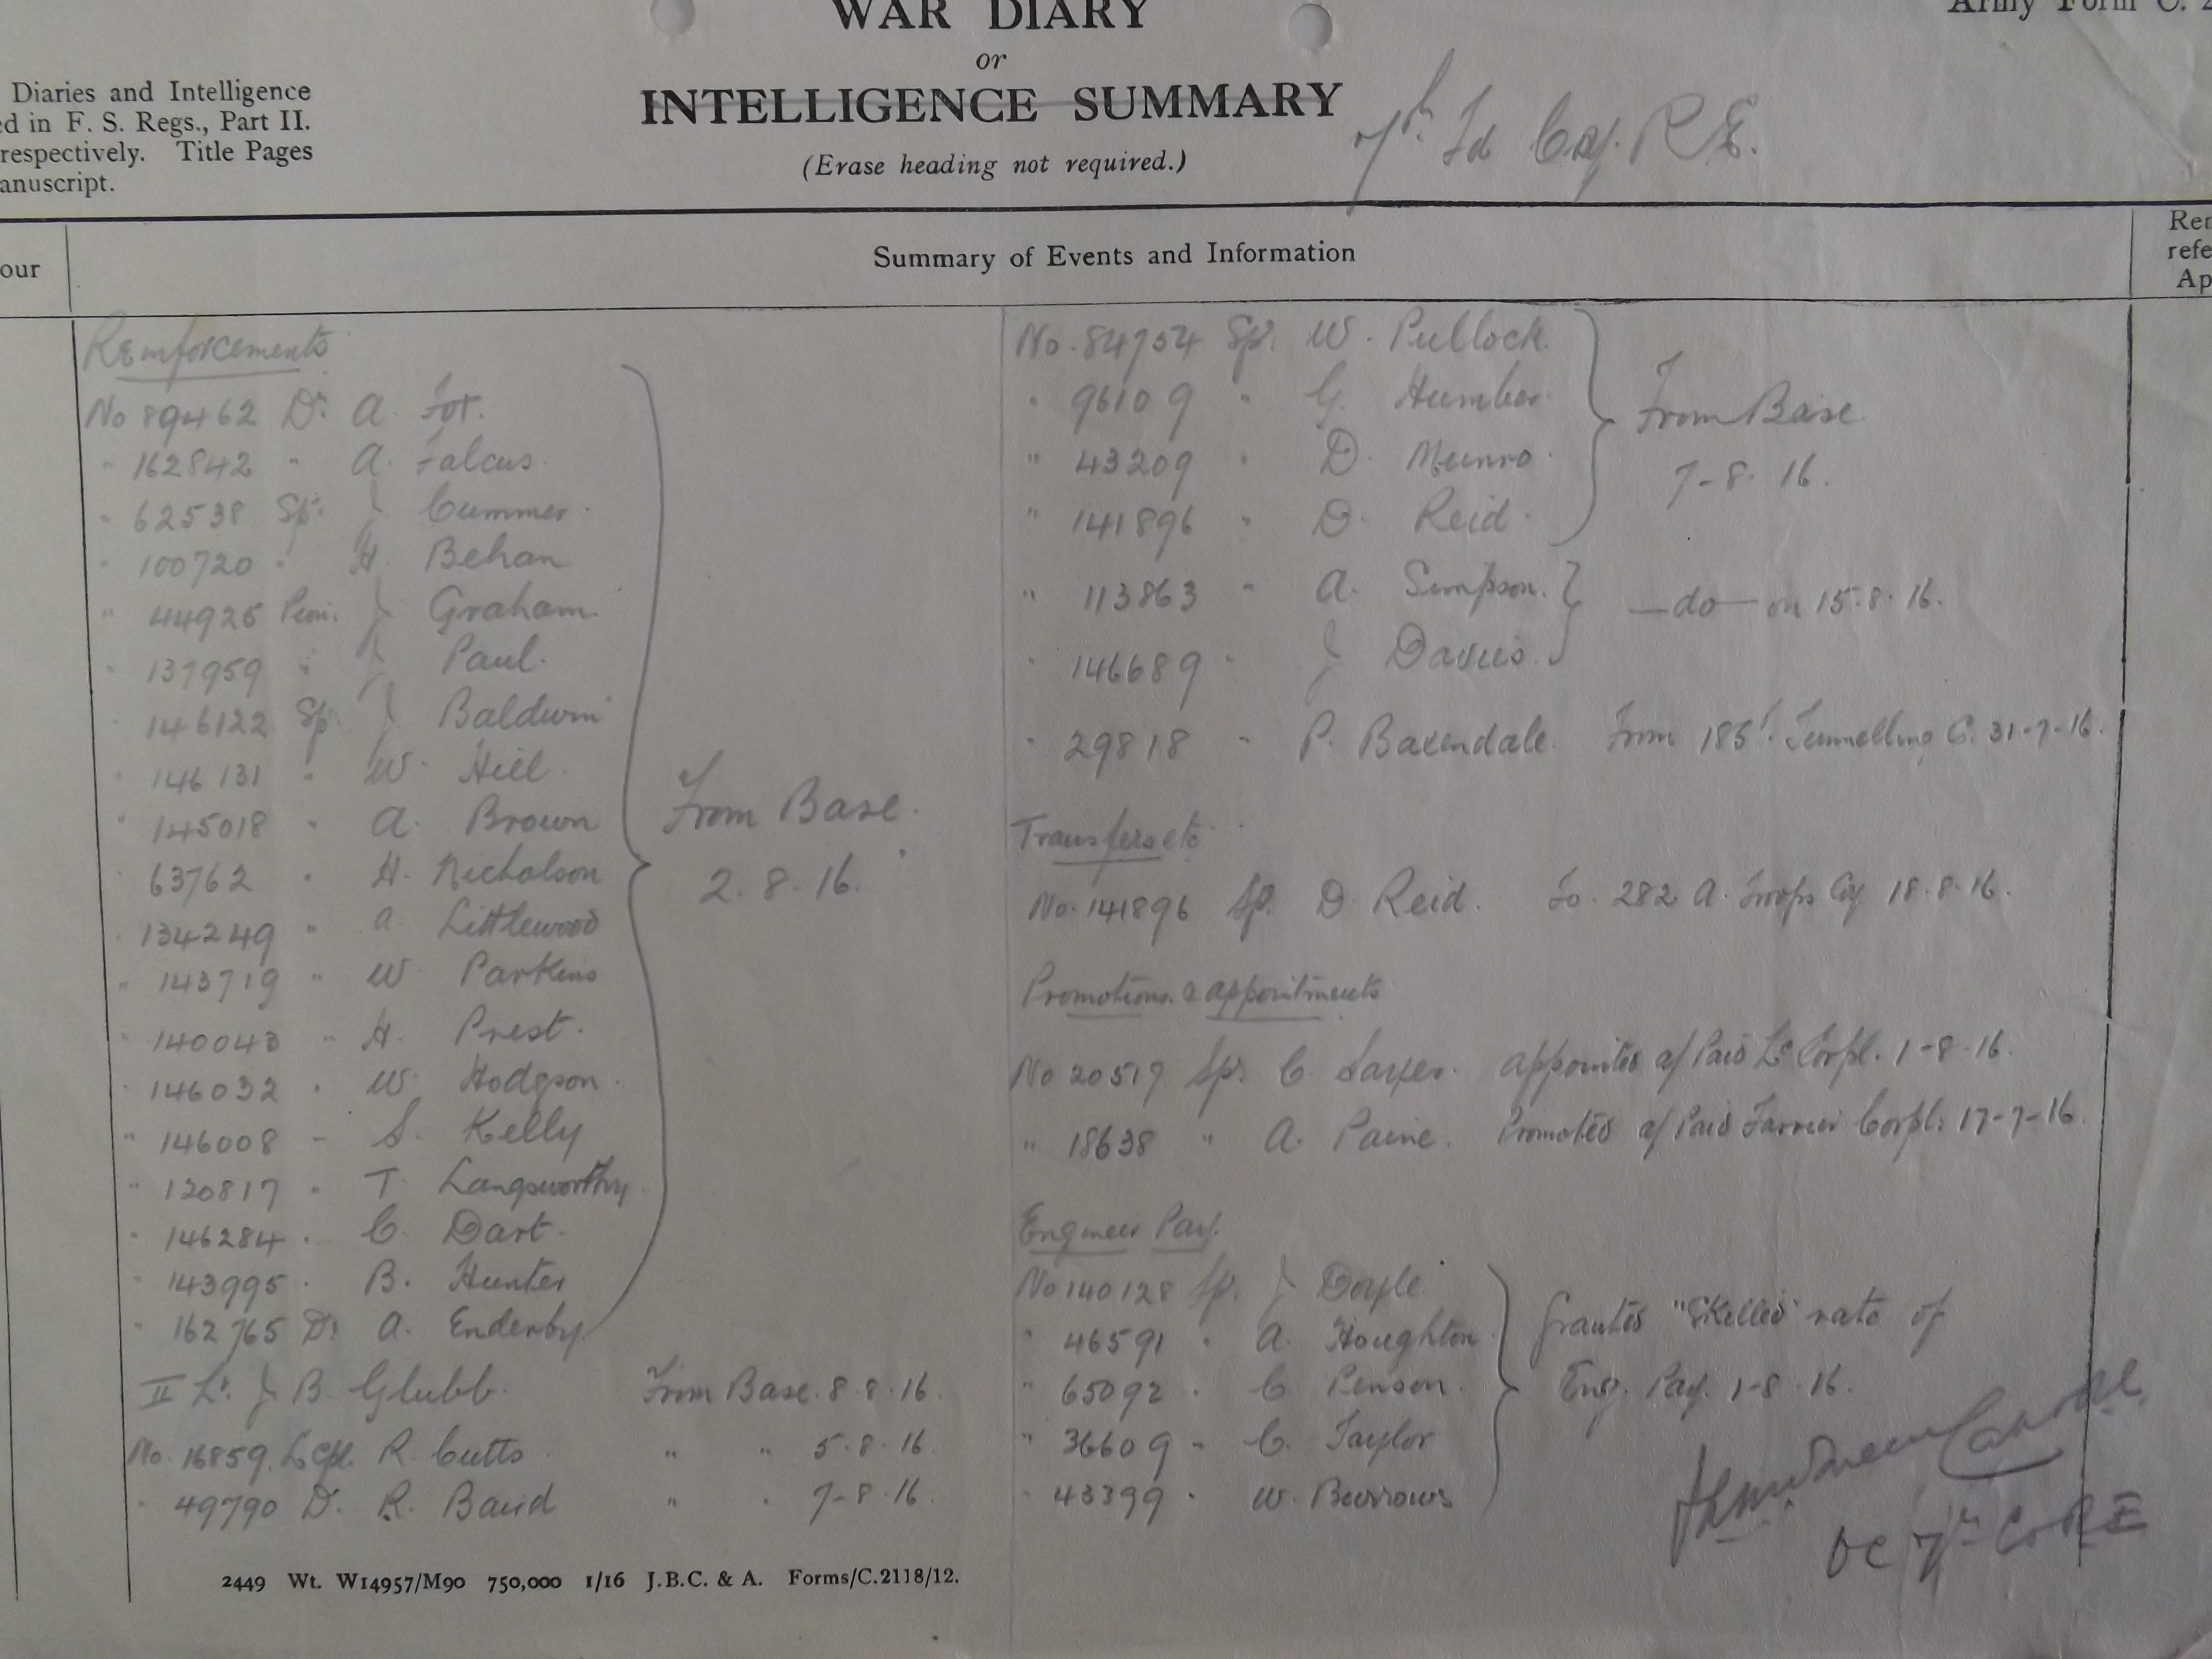 WAR DIARY
or
INTELLIGENCE SUMMARY
(Erase heading not required.)
Army Form C. 2
Diaries and Intelligence
ed in F. S. Regs., Part II.
respectively. Title Pages
anuscript.
7th Fd Coy. R.E.
our
Summary of Events and Information
Rem
refe
Ap
Reinforcements
No 89462 Dr. A. Fox.
" 162842 " A. Falcus.
" 62538 Sp. J Cummer.
" 100720 " H Behan
" 44926 Pion. J Graham.
" 137959 " J Paul.
" 146122 Sp. J Baldwin
" 146131 " W. Hill.
" 145018 " A. Brown
" 63762 " H. Nicholson
" 134249 " A Littlewood
" 143719 " W Parkins
" 140043 " H. Prest.
" 146032 " W Hodgson.
" 146008 " S. Kelly
" 120817 " T Langsworthy.
" 146284 " C. Dart.
" 143995 " B. Hunter
" 162765 Dr A. Enderby
From Base.
2.8.16.
II Lt. J B Glubb. From Base. 8.8.16.
No. 16859. L Cpl. R. Cutts " " 5.8.16.
" 49790 Dr. R. Baird " " 7-8.16.
No. 84754 Sp. W. Pullock.
" 96109 " G. Humber.
" 43209 " D. Munro.
" 141896 " D. Reid.
From Base
7-8.16.
" 113863 " A. Simpson.
" 146689 " J Davies.
—do— on 15.8.16.
" 29818 " P. Baxendale. From 185t. Tunnelling C. 31-7-16.
Transfers etc.
No. 141896 Sp. D Reid. To. 282 A. Troops Coy 18.8.16.
Promotions & appointments
No 20519 Sp. C. Sayer. appointed a/ Paid Lc Corpl. 1-8.16.
" 18638 " A. Paine. Promoted a/ Paid Farrier Corpl: 17-7-16.
Engineer Pay.
No 140128 Sp. J Doyle
" 46591 " A. Houghton
" 65092 " C Penson.
" 36609 " C. Taylor
" 43399 " W. Burrows
Granted "Skilled" rate of
Eng. Pay. 1-8.16.
OC 7th Co RE
2449 Wt. W14957/M90 750,000 1/16 J.B.C. & A. Forms/C.2118/12.